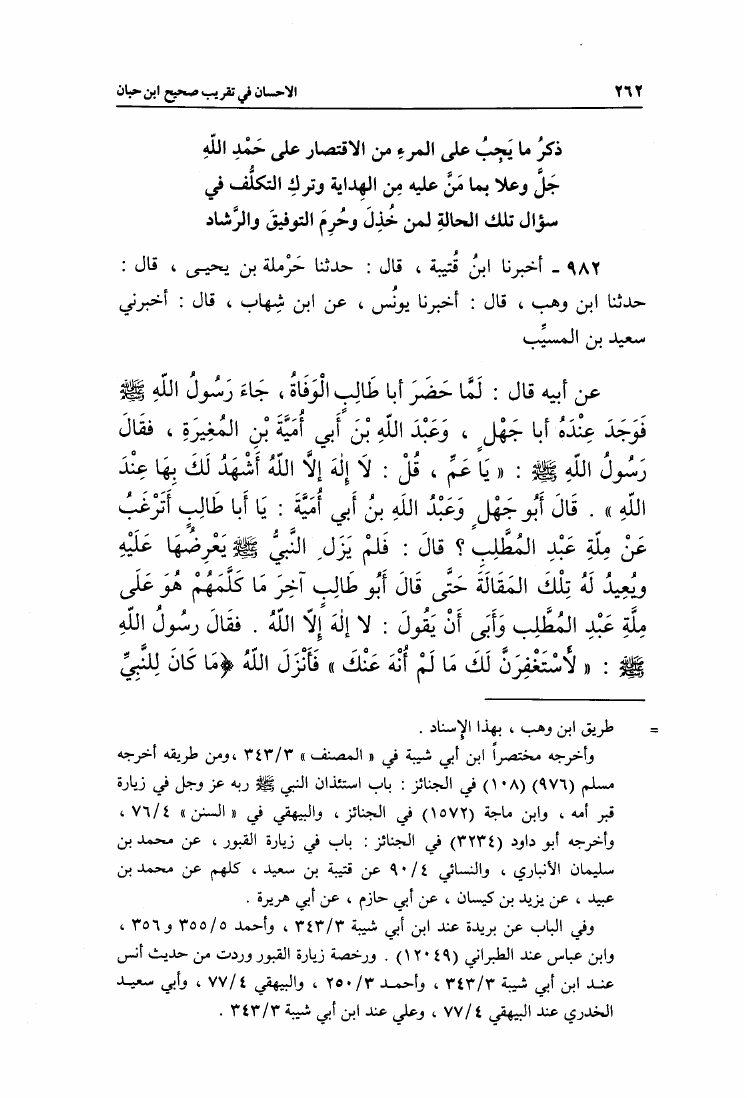 ٢٦٢ الاحسان في تقريب صحيح ابن حبان
ذكرُ ما يَجِبُ على المرءِ من الاقتصار على حَمْدِ اللّهِ
جَلَّ وعلا بما مَنَّ عليه مِن الهِداية وتركِ التكلُّف في
سؤال تلك الحالةِ لمن خُذِلَ وحُرِمَ التوفيقَ والرَّشاد
٩٨٢ ـ أخبرنا ابنُ قُتيبة ، قال : حدثنا حَرْملة بن يحيـى ، قال :
حدثنا ابن وهب ، قال : أخبرنا يونُس ، عن ابن شِهاب ، قال : أخبرني
سعيد بن المسيِّب
عن أبيه قال : لَمَّا حَضَرَ أبا طَالِبٍ الْوَفَاةُ ، جَاءَ رَسُولُ اللّهِ ﷺ
فَوَجَدَ عِنْدَهُ أبا جَهْلٍ ، وَعَبْدَ اللّهِ بْنَ أَبي أُمَيَّةَ بْنِ المُغِيرَةِ ، فقَالَ
رَسُولُ اللّهِ ﷺ : « يَا عَمِّ ، قُلْ : لَا إِلٰهَ إلَّا اللّهُ أَشْهَدُ لَكَ بِهَا عِنْدَ
اللّهِ » . قَالَ أَبُو جَهْلٍ وَعَبْدُ اللّهِ بنُ أَبي أُمَيَّةَ : يَا أبا طَالِبٍ أَتَرْغَبُ
عَنْ مِلَّةِ عَبْدِ المُطَّلِبِ ؟ قالَ : فَلَمْ يَزَلِ النَّبيُّ ﷺ يَعْرِضُهَا عَلَيْهِ
ويُعِيدُ لَهُ تِلْكَ المَقَالَةَ حَتَّى قَالَ أَبُو طَالِبٍ آخِرَ مَا كَلَّمَهُمْ هُوَ عَلَى
مِلَّةِ عَبْدِ المُطَّلِب وَأَبَى أَنْ يَقُولَ : لا إلٰهَ إلّا اللّهُ . فقَالَ رسُولُ اللّهِ
ﷺ : « لأَسْتَغْفِرَنَّ لَكَ مَا لَمْ أُنْهَ عَنْكَ » فَأَنْزَلَ اللّهُ ﴿مَا كَانَ لِلنَّبِيِّ
= طريق ابن وهب ، بهذا الإسناد .
وأخرجه مختصراً ابن أبي شيبة في « المصنف » ٣٤٣/٣ ، ومن طريقه أخرجه
مسلم (٩٧٦) (١٠٨) في الجنائز : باب استئذان النبي ﷺ ربه عز وجل في زيارة
قبر أمه ، وابن ماجة (١٥٧٢) في الجنائز ، والبيهقي في « السنن » ٧٦/٤ ،
وأخرجه أبو داود (٣٢٣٤) في الجنائز : باب في زيارة القبور ، عن محمد بن
سليمان الأنباري ، والنسائي ٩٠/٤ عن قتيبة بن سعيد ، كلهم عن محمد بن
عبيد ، عن يزيد بن كيسان ، عن أبي حازم ، عن أبي هريرة .
وفي الباب عن بريدة عند ابن أبي شيبة ٣٤٣/٣ ، وأحمد ٣٥٥/٥ و ٣٥٦ ،
وابن عباس عند الطبراني (١٢٠٤٩) . ورخصة زيارة القبور وردت من حديث أنس
عنـد ابن أبي شيبة ٣٤٣/٣ ، وأحمـد ٢٥٠/٣ ، والبيهقي ٧٧/٤ ، وأبي سعيـد
الخدري عند البيهقي ٧٧/٤ ، وعلي عند ابن أبي شيبة ٣٤٣/٣ .